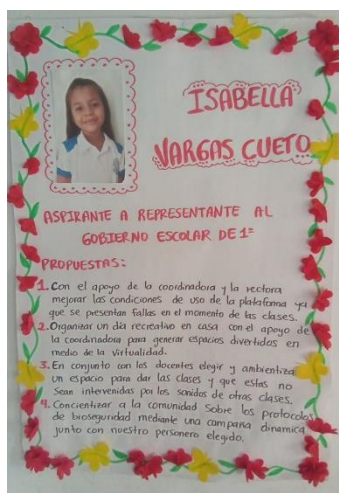 ISABELLA
VARGAS CUETO
ASPIRANTE A REPRESENTANTE AL
GOBIERNO ESCOLAR DE 1º
PROPUESTAS:
1. Con el apoyo de la coordinadora y la rectora
mejorar las condiciones de uso de la plataforma ya
que se presentan fallas en el momento de las clases.
2. Organizar un día recreativo en casa con el apoyo de
la coordinadora para generar espacios divertidos en
medio de la virtualidad.
3. En conjunto con los docentes elegir y ambientizar
un espacio para dar las clases y que estas no
sean intervenidas por los sonidos de otras clases.
4. Concientizar a la comunidad sobre los protocolos
de bioseguridad mediante una campaña dinamica
junto con nuestro personero elegido.